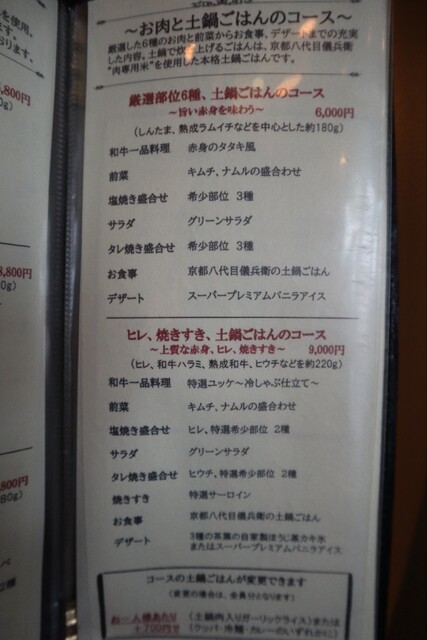 ～お肉と土鍋ごはんのコース～
厳選した6種のお肉と前菜からお食事、デザートまでの充実
した内容。土鍋で炊き上げるごはんは、京都八代目儀兵衛
"肉専用米"を使用した本格土鍋ごはんです。
厳選部位6種、土鍋ごはんのコース
～旨い赤身を味わう～ 6,000円
(しんたま、熟成ラムイチなどを中心とした約180g)
和牛一品料理 赤身のタタキ風
前菜 キムチ、ナムルの盛合わせ
塩焼き盛合せ 希少部位 3種
サラダ グリーンサラダ
タレ焼き盛合せ 希少部位 3種
お食事 京都八代目儀兵衛の土鍋ごはん
デザート スーパープレミアムバニラアイス
ヒレ、焼きすき、土鍋ごはんのコース
～上質な赤身、ヒレ、焼きすき～ 9,000円
(ヒレ、和牛ハラミ、熟成和牛、ヒウチなどを約220g)
和牛一品料理 特選ユッケ～冷しゃぶ仕立て～
前菜 キムチ、ナムルの盛合わせ
塩焼き盛合せ ヒレ、特選希少部位 2種
サラダ グリーンサラダ
タレ焼き盛合せ ヒウチ、特選希少部位 2種
焼きすき 特選サーロイン
お食事 京都八代目儀兵衛の土鍋ごはん
デザート 3種の茶葉の自家製ほうじ茶カキ氷
またはスーパープレミアムバニラアイス
コースの土鍋ごはんが変更できます
(変更の場合は、全員分となります)
お一人様あたり (土鍋肉入りガーリックライス)または
+700円 (クッパ・冷麺・カレーのいずれか)に